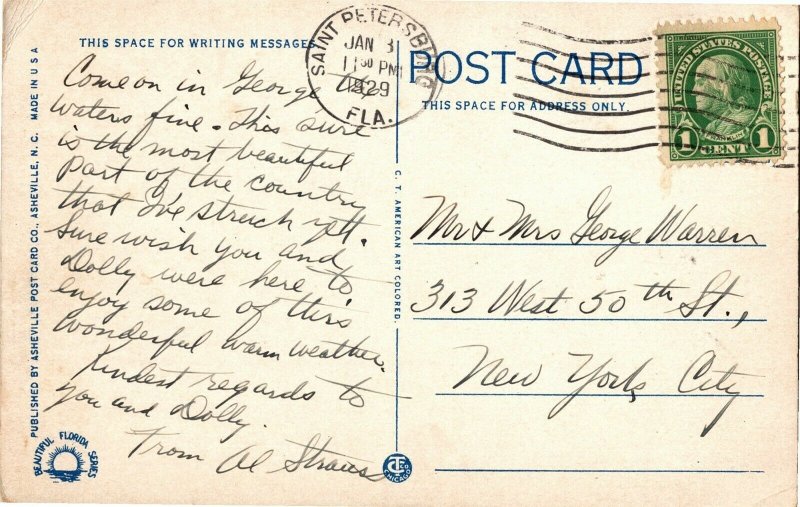 THIS SPACE FOR WRITING MESSAGES
Come on in George the
waters fine. This sure
is the most beautiful
part of the country
that I've struck yet.
Sure wish you and
Dolly were here to
enjoy some of this
wonderful warm weather.
Kindest regards to
you and Dolly.
From Al Straus
PUBLISHED BY ASHEVILLE POST CARD CO., ASHEVILLE, N. C. MADE IN U S A
BEAUTIFUL FLORIDA SERIES
SAINT PETERSBURG
JAN 3
11 30 PM
1929
FLA.
C. T. AMERICAN ART COLORED.
CHICAGO
POST CARD
THIS SPACE FOR ADDRESS ONLY.
UNITED STATES POSTAGE
FRANKLIN
1 CENT 1
Mr & Mrs George Warren
313 West 50th St.,
New York City